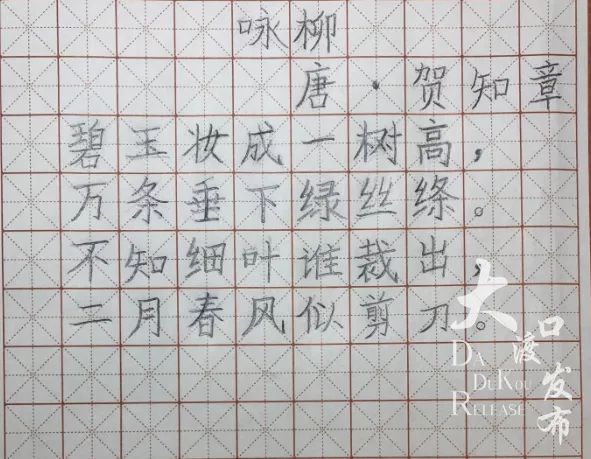 咏柳
唐·贺知章
碧玉妆成一树高，
万条垂下绿丝绦。
不知细叶谁裁出，
二月春风似剪刀。
大渡口发布
DA DUKOU RELEASE